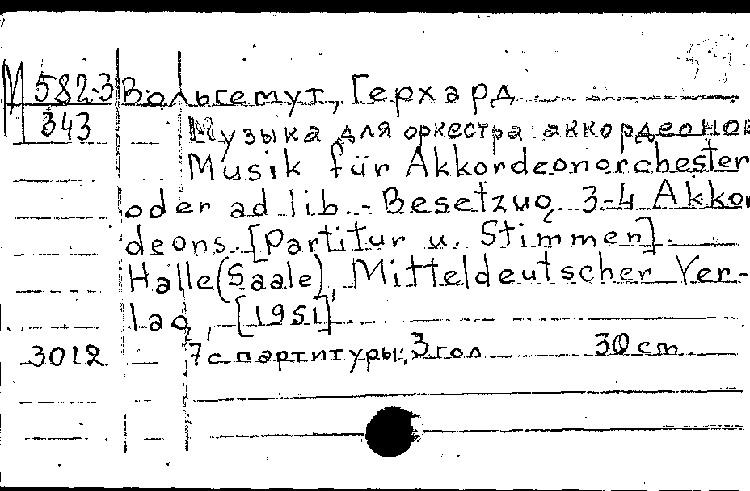 М 582-3 Вольгемут, Герхард
343 Музыка для оркестра аккордеонов
Musik für Akkordeonorchester
oder ad lib. - Besetzug 3-4 Akkor
deons. [Partitur u. Stimmen].
Halle (Saale), Mitteldeutscher Ver-
lag, [1951]
3012 7 с партитуры, 3 гол 30 cm